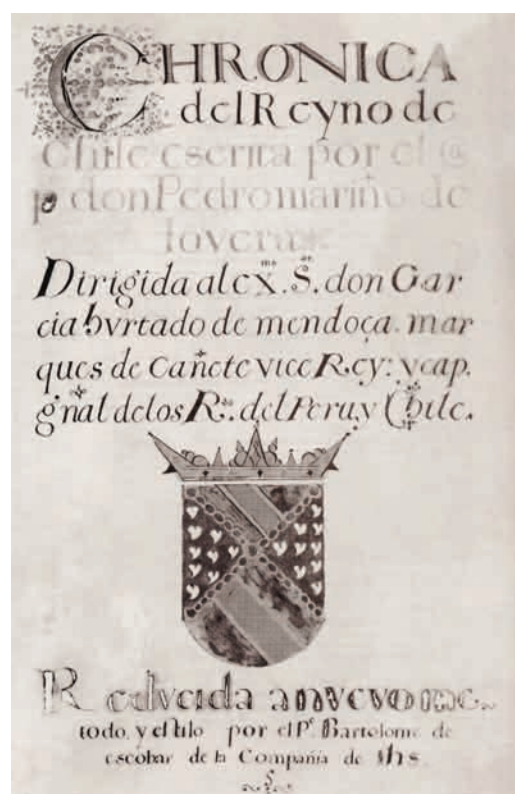 CHRONICA
del Reyno de
Chile escrita por el @
p don Pedro mariño de
lovera
Dirigida al exmo. Sor. don Gar
cia hurtado de mendoça. mar
ques de Cañete vice Rey: y cap.
gñal de los Rs. del Peru, y Chile.
Redvcida a nvevo me-
todo, y estilo por el Pe. Bartolome de
escobar de la Compañia de ihs